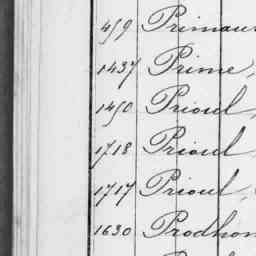 459 Primau
1437 Prime,
1450 Prioul,
1718 Prioul
1717 Prioul,
1630 Prodhom